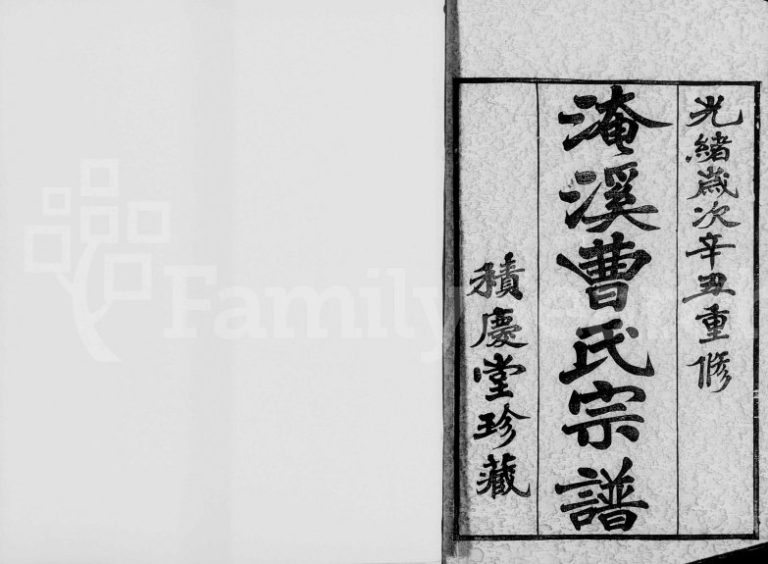 光緒歲次辛丑重修
淹溪曹氏宗譜
積慶堂珍藏
Family